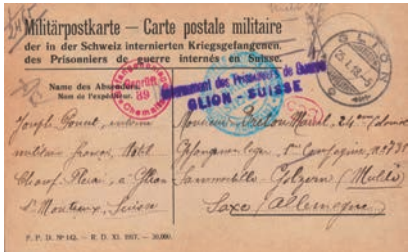 Militärpostkarte — Carte postale militaire
der in der Schweiz internierten Kriegsgefangenen.
des Prisonniers de guerre internés en Suisse.
Name des Absenders
Nom de l'expéditeur.
Geprüft
89
Chemnitz
Internement des Prisonniers de Guerre
GLION - SUISSE
GLION
25.1.18.-5
Joseph
militaire français, Hôtel
Champ Fleuri, à Glion
s/ Montreux, Suisse
Monsieur Marcel, 24ème
Gefangenenlager, Compagnie n° 731
Golzern (Mulde)
Saxe (Allemagne)
F. P. D. Nº 143. — R. D. XI. 1917. — 30,000.